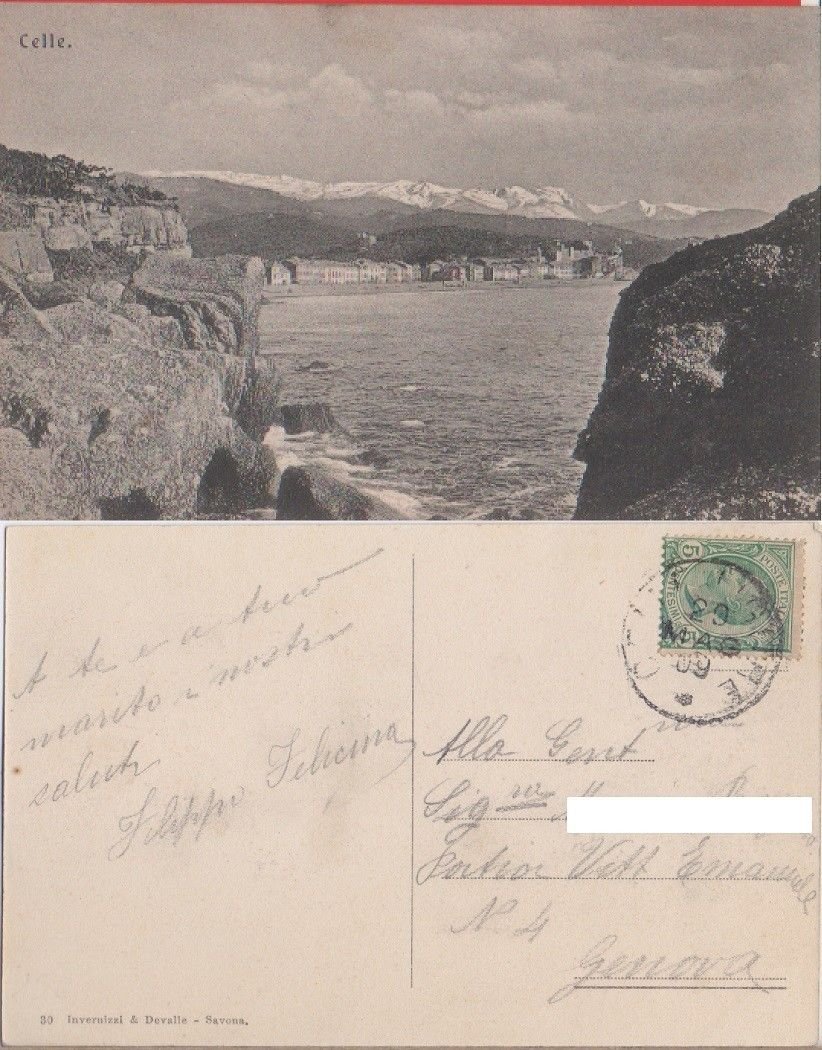 Celle.
A te e a tuo
marito i nostri
saluti
Filippo Felicina
5
POSTE
29
MAG
09
Alla Gent
Sig ra
Vitt Emanuele
N. 4
Genova
30 Invernizzi & Devalle - Savona.